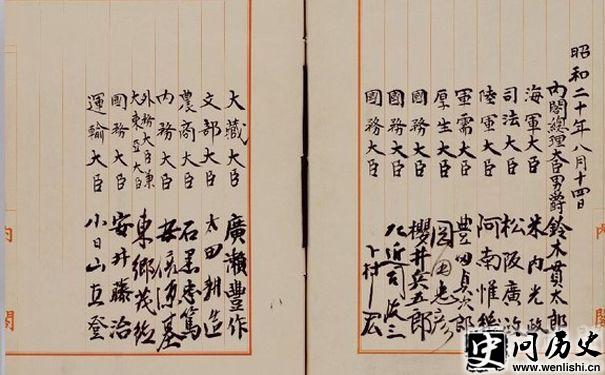 昭和二十年八月十四日
內閣總理大臣男爵鈴木貫太郎
海軍大臣 米內光政
司法大臣 松阪廣政
陸軍大臣 阿南惟幾
軍需大臣 豊田貞次郎
厚生大臣 岡田忠彥
國務大臣 櫻井兵五郎
國務大臣 左近司政三
國務大臣 下村宏
大藏大臣 廣瀨豊作
文部大臣 太田耕造
農商大臣 石黑忠篤
內務大臣 安倍源基
外務大臣兼
大東亞大臣 東鄉茂德
國務大臣 安井藤治
運輸大臣 小日山直登
內閣
问历史
www.wenlishi.cn